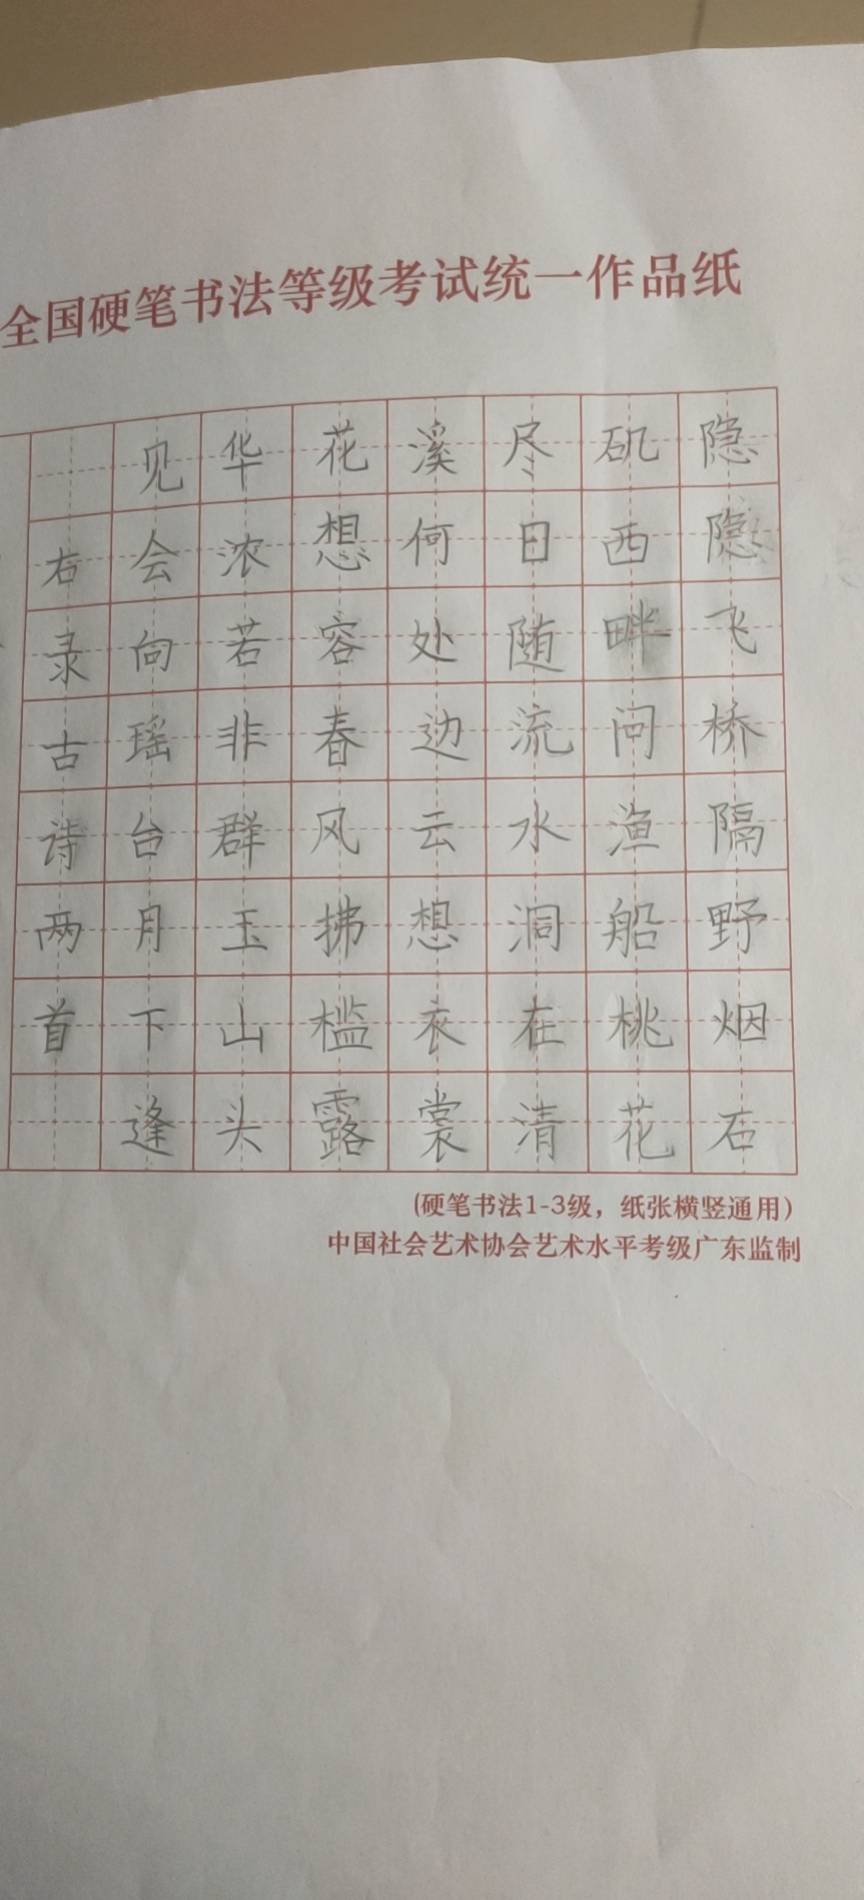 全国硬笔书法等级考试统一作品纸
隐隐飞桥隔野烟石
矶西畔问渔船桃花
尽日随流水洞在清
溪何处边云想衣裳
花想容春风拂槛露
华浓若非群玉山头
见会向瑶台月下逢
右录古诗两首
(硬笔书法1-3级，纸张横竖通用)
中国社会艺术协会艺术水平考级广东监制